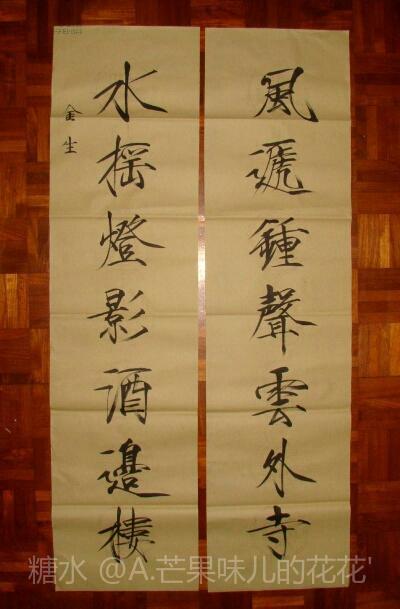 風遞鍾聲雲外寺
水摇燈影酒邉樓
金生
糖水 @A.芒果味儿的花花'